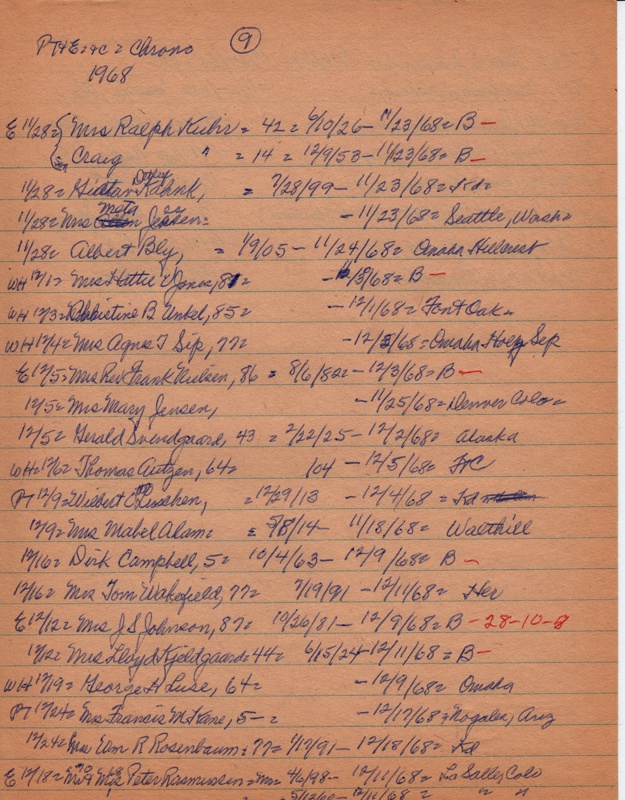 PT+E=&C= Chrono ⑨
1968
E 11/28= { Mrs Ralph Kubir = 42 = 6/10/26 - 11/23/68= B -
Craig " = 14 = 12/9/53 - 11/23/68= B -
11/28= Gustav Kahnk, = 7/28/99 - 11/23/68=
11/28= Mrs Meta Jessen= - 11/23/68= Seattle, Wash=
11/28= Albert Bly, = 1/9/05 - 11/24/68= Omaha Hillcrest
WH 12/1= Mrs Hattie E Jones, 81= - 12/3/68= B -
WH 12/3= Christine B Unkel, 85= - 12/1/68= Font Oak=
WH 12/4= Mrs Agnes T Sip, 77= - 12/3/68= Omaha Holy Sep
E 12/5= Mrs Rev Frank Nielsen, 86 = 8/6/82= - 12/3/68= B -
12/5= Mrs Mary Jensen, - 11/25/68= Denver Colo=
12/5= Gerald Svendgaard, 43 = 2/22/25 - 12/2/68= Alaska
WH= 12/6= Thomas Autzen, 64= /04 - 12/5/68= FC
PT 12/9= Wilbert Lueschen, = 12/29/13 - 12/4/68 =
12/9= Mrs Mabel Alam= = 5/8/14 - 11/18/68= Walthill
12/16= Dirk Campbell, 5= 10/4/63 - 12/9/68= B -
12/16= Mrs Tom Wakefield, 77= 7/19/91 - 12/11/68= Her
E 12/12= Mrs J S Johnson, 87= 10/26/81 - 12/9/68= B - 28-10-8
12/12= Mrs Lloyd Kjeldgaard= 44= 6/15/24 - 12/11/68= B -
WH 12/19= George H Luse, 64= - 12/9/68= Omaha
PT 12/24= Mrs Francis M Kane, 5-= - 12/17/68= Nogales, Ariz
12/24= Mrs Wm R Rosenbaum= 77= 1/17/91 - 12/18/68=
E 12/18= Mr 70 & Mrs 68 Peter Rasmussen = Mr= 4/6/98 - 12/11/68= La Salle, Colo
5/12/00 - 12/11/68 = " " "